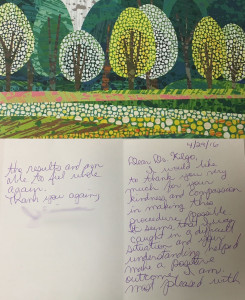 4/29/16
Dear Dr. Kilgo,
I would like
to thank you very
much for your
kindness and compassion
in making this
procedure possible.
caught in a difficult
situation and your
understanding helped
make a positive
outcome. I am
most pleased with
the results and am
able to feel whole
again.
Thank you again,